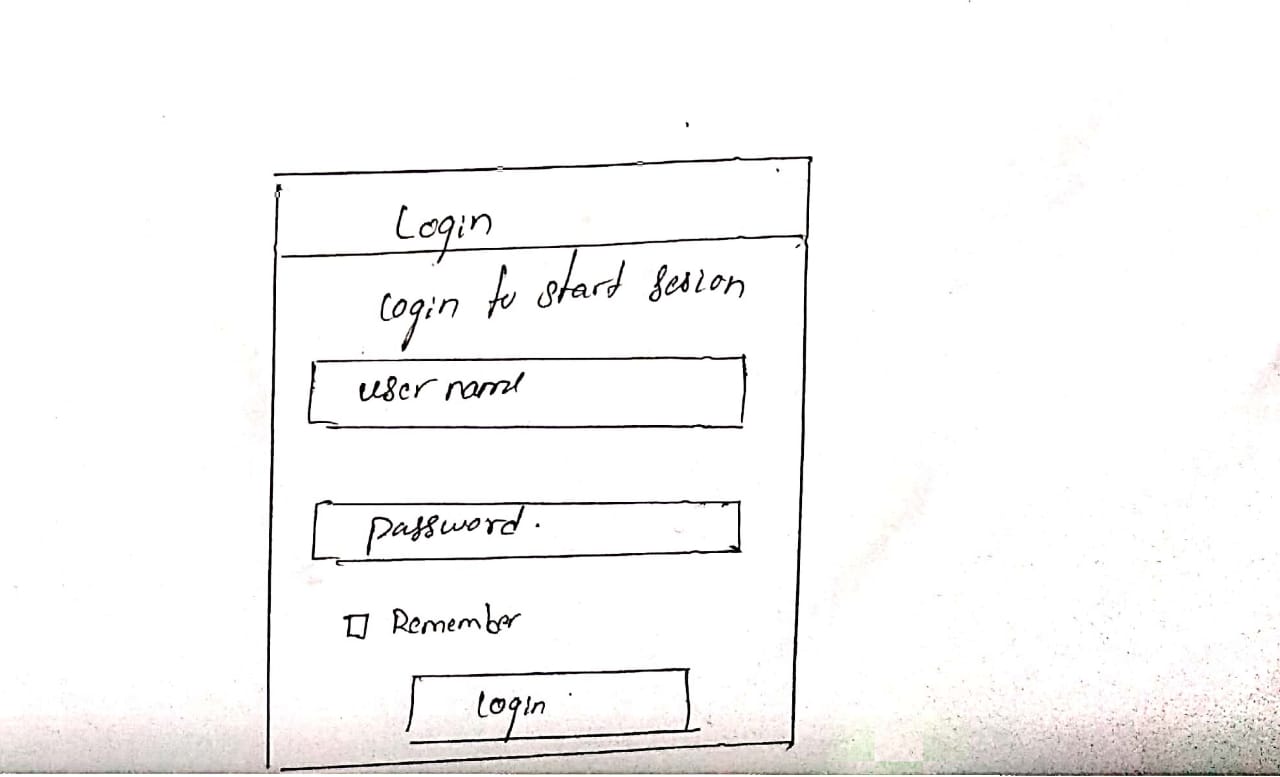 Login
Login to start sesion
user name
password.
Remember
Login